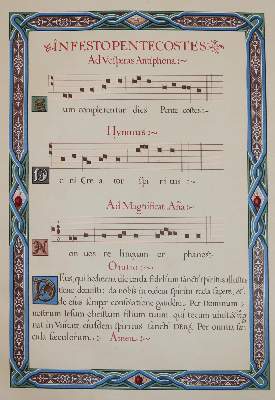 IN FESTO PENTECOSTES
Ad Vesperas Antiphona :~
um complerentur dies Pente costes:
Hymnus :~
V eni Cre a tor spi ri tus :
Ad Magnificat Aña :~
N on vos re linquam or phanos:
Oratio :~
Deus, qui hodierna die corda fidelium sancti spiritus illustra
tione docuisti: da nobis in eodem spiritu recta sapere, et
de eius semper consolatione gaudere. Per Dominum
nostrum Iesum christum filium tuum: qui tecum vivit et
nat in Unitate eiusdem spiritus sancti Deus. Per omnia sæ
cula sæculorum. Amen.